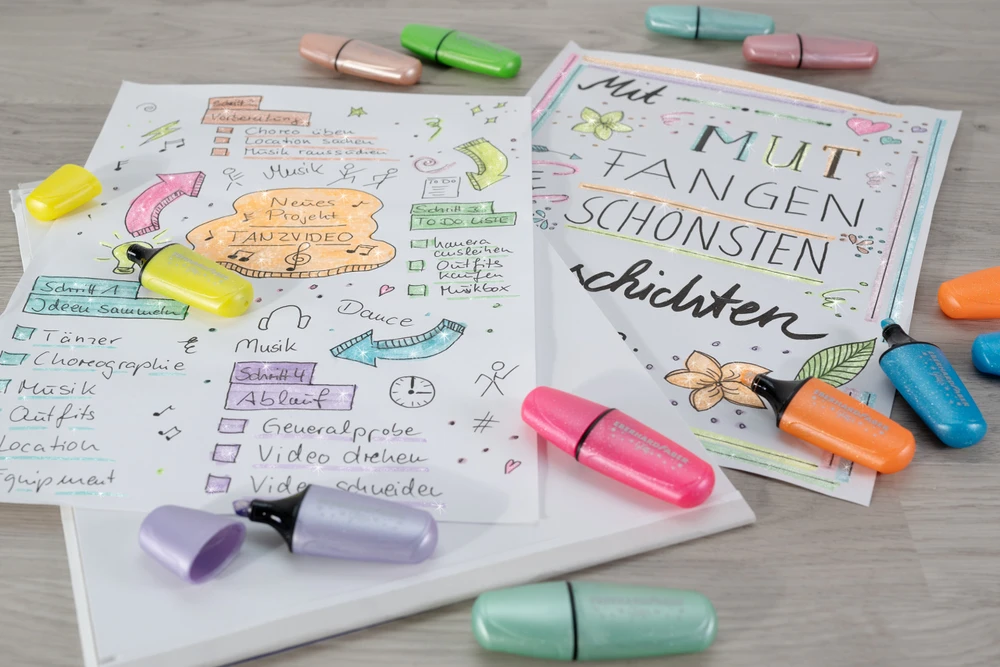 Schritt
Vorbereitung
Choreo üben
Location suchen
Musik raussuchen
Musik
To Do
Neues
Projekt
TANZVIDEO
Schritt
TO DO LISTE
Kamera
ausleihen
Outfits
kaufen
Musikbox
Schritt 1
Ideen sammeln
Tänzer
Choreographie
Musik
Outfits
Location
Equipment
Musik
Dance
Schritt 4
Ablauf
Generalprobe
Video drehen
Video schneiden
#
Mit
MUT
FANGEN
SCHÖNSTEN
chichten
EBERHARD FABER